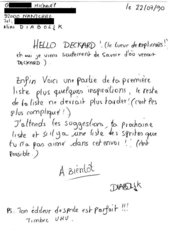 le 22/09/90
92000 NANTERRE
DIABOLIK
HELLO DECKARD ! (le tueur de replicants !
et oui je viens seulement de savoir d'où venait
DECKARD)
Enfin Voici une partie de ta première
liste plus quelques inspirations, le reste
de ta liste ne devrait plus tarder (c'est pas
plus compliqué !)
J'attends tes suggestions, ta prochaine
liste et s'il y a une liste des sprites que
tu n'a pas aimé dans cet envoi ! (c'est
possible)
A Bientôt
DIABOLIK
PS. Ton éditeur de sprite est parfait !!!